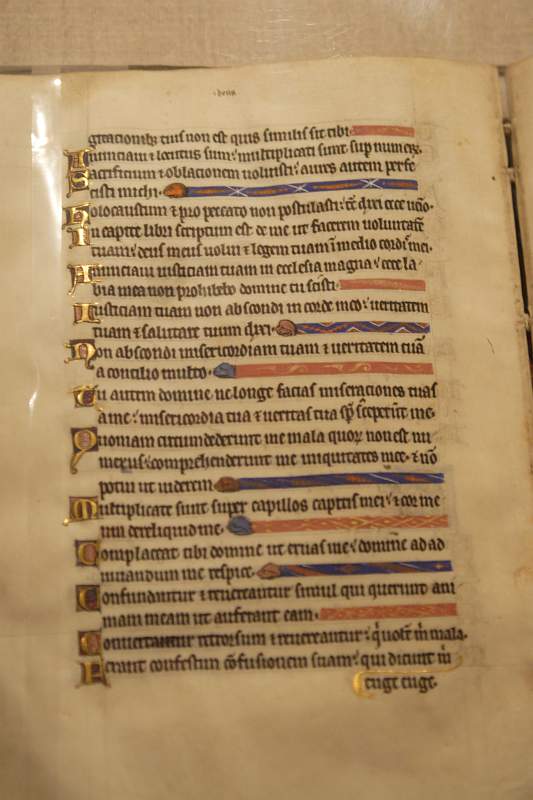 deus
gitacionibꝫ tuis non est quis similis sit tibi.
Annunciaui ⁊ locutus sum: multiplicati sunt sup̄ numerū.
Sacrificium ⁊ oblacionem noluisti: aures autem perfe
cisti michi.
Holocaustum ⁊ pro peccato non postulasti: tc̄ dixi ecce uēio.
In capite libri scriptum est de me ut facerem uoluntatē
tuam: deus meus uolui ⁊ legem tuam ī medio cordis mei.
Annunciaui iusticiam tuam in ecclesia magna: ecce la
bia mea non prohibebo domine tu scisti.
Iusticiam tuam non abscondi in corde meo: ueritatem
tuam ⁊ salutare tuum dixi.
Non abscondi misericordiam tuam ⁊ ueritatem tuā
a concilio multo.
Tu autem domine ne longe facias miseraciones tuas
a me: misericordia tua ⁊ ueritas tua sp̄ susceperūt me.
Quoniam circumdederunt me mala quorꝫ non est nu
merus: comprehenderunt me iniquitates mee. ⁊ nō
potui ut uiderem.
Multiplicate sunt super capillos capitis mei: ⁊ cor me
um dereliquid me.
Complaceat tibi domine ut eruas me: domine ad ad
iuuandum me respice.
Confundantur ⁊ reuereantur simul qui querunt ani
mam meam ut auferant eam.
Conuertantur retrorsum ⁊ reuereantur: q̇ uolūt m̄ mala.
Ferant confestim cōfusionem suam: qui dicunt m̄
euge euge.